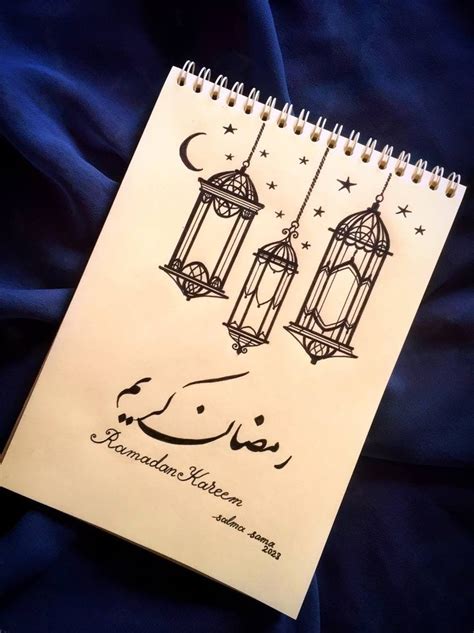 رمضان كريم
Ramadan Kareem
salma sama
2023